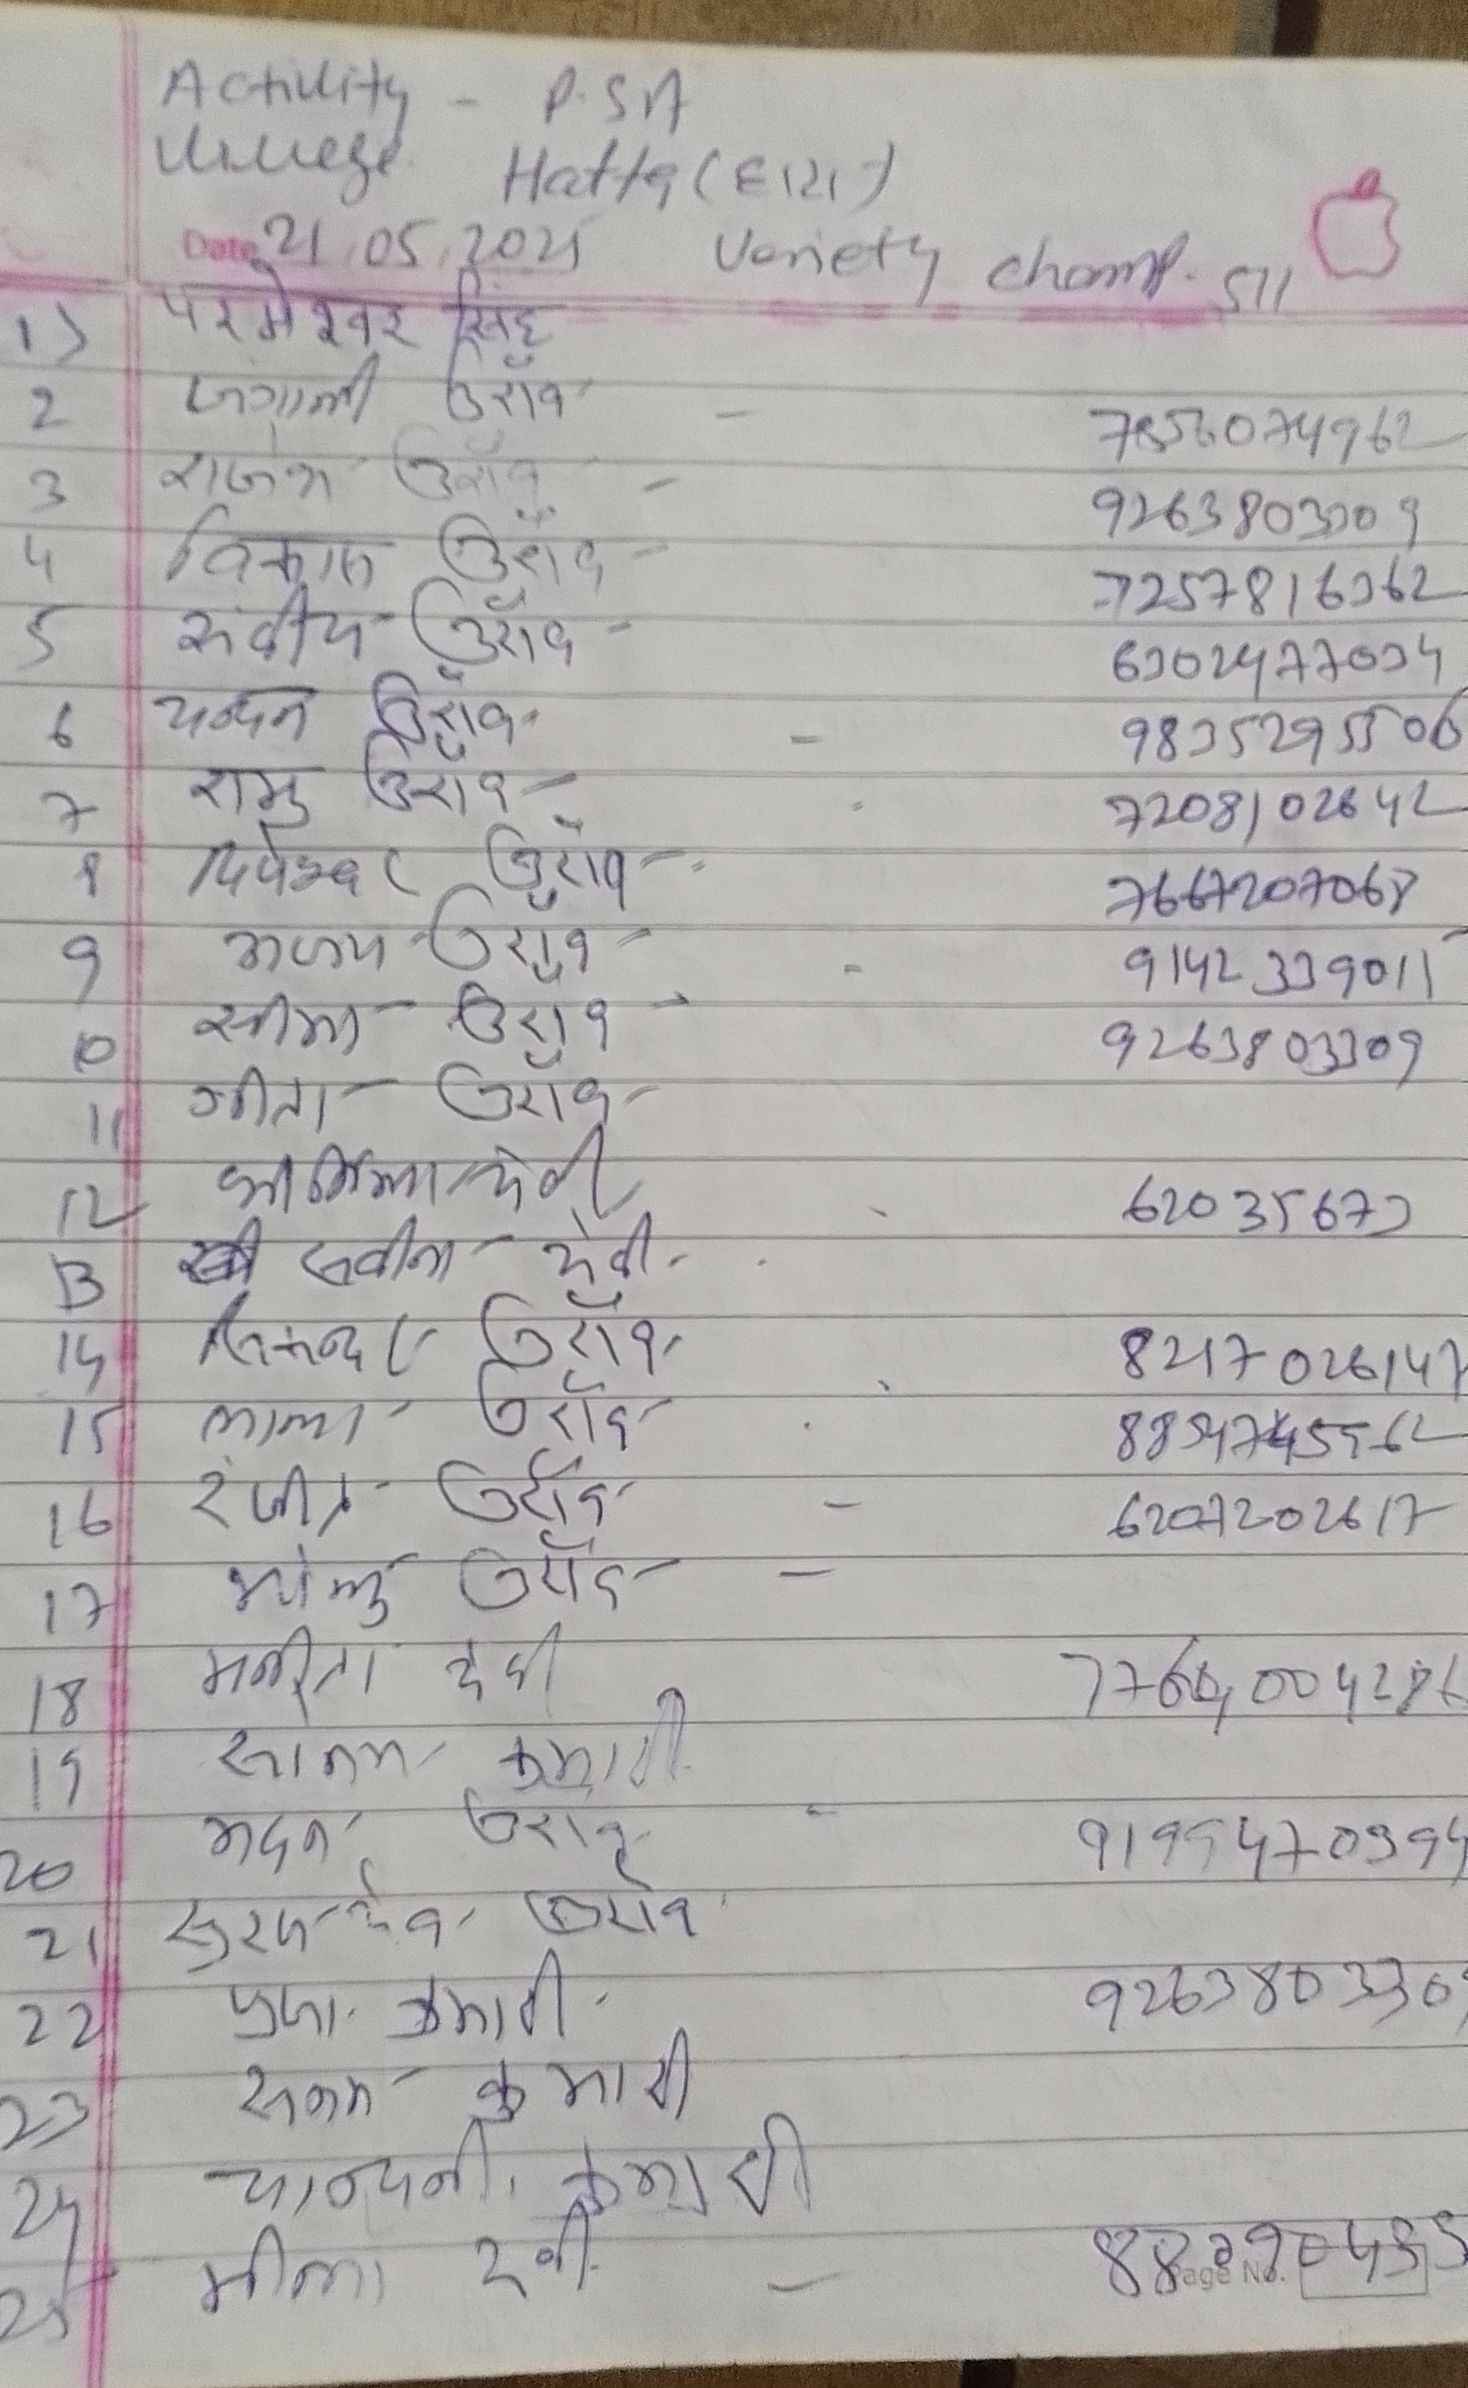 Activity - P.SA
Village Hatta
Date 21.05.2025 Variety champ. 511
1) परमेश्वर सिंह
2 जंगाली उराँव - 7856074962
3 राजेश उराँव - 9263803309
4 विकास उराँव - 7257816362
5 संदीप उराँव - 6302477034
6 चन्दन उराँव - 9835295506
7 रामु उराँव - 7208102642
8 उराँव - 7667207068
9 अजय उराँव - 9142339011
10 सीमा उराँव - 9263803309
11 गीता उराँव
12 देवी 62035673
13 सवीता देवी
14 सिकन्दर उराँव 8217026147
15 लाला उराँव
16 रंजीत उराँव - 6207202617
17 उराँव -
18 देवी
19 सोनम कुमारी
20 मदन उराँव - 9199470394
21 सुरजदेव उराँव
22 पुजा कुमारी 926380330
23 सनम कुमारी
24 चान्दनी कुमारी
25 देवी -
Page No.